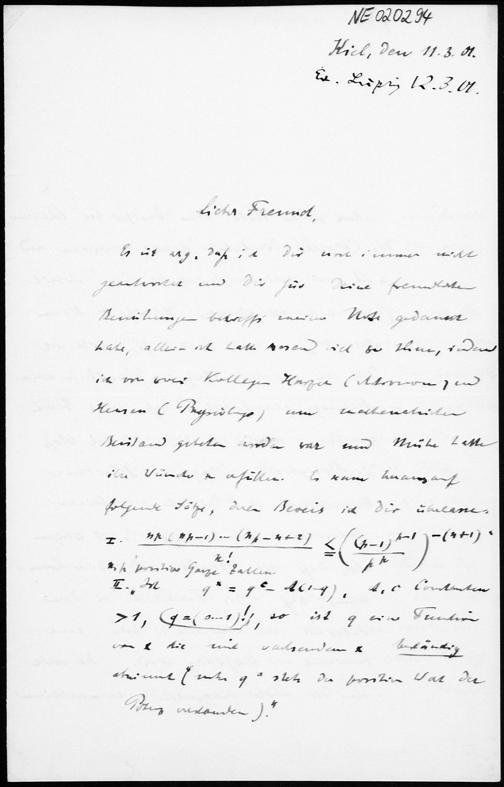 NE 020294
Kiel, den 11.3.01.
12.3.01.
Lieber Freund,
Es ist arg, daß ich Dir noch immer nicht
geantwortet und Dir für Deine freundlichen
Bemühungen betreffs meiner Note gedankt
habe, allein ich hatte zu thun, indem
ich von zwei Kollegen Harzer (Astronom) und
Hensen (Physiologe) um mathematischen
Beistand gebeten worden war und Mühe hatte
ihre Wünsche zu erfüllen. Es kam heraus
folgende Sätze, deren Beweis ich Dir überlasse.
I. np(np-1)...(np-n+2) / n! ≦ ((p-1)^{p-1} / p^p)^{-(n+1)}
n, p positive Ganze Zahlen.
II. „Ist q^x = q^c - A(1-q), A, c Constanten
>1, so ist q eine Function
von x die mit wachsendem x beständig
abnimmt (unter q stets der positive Wert der
verstanden)."